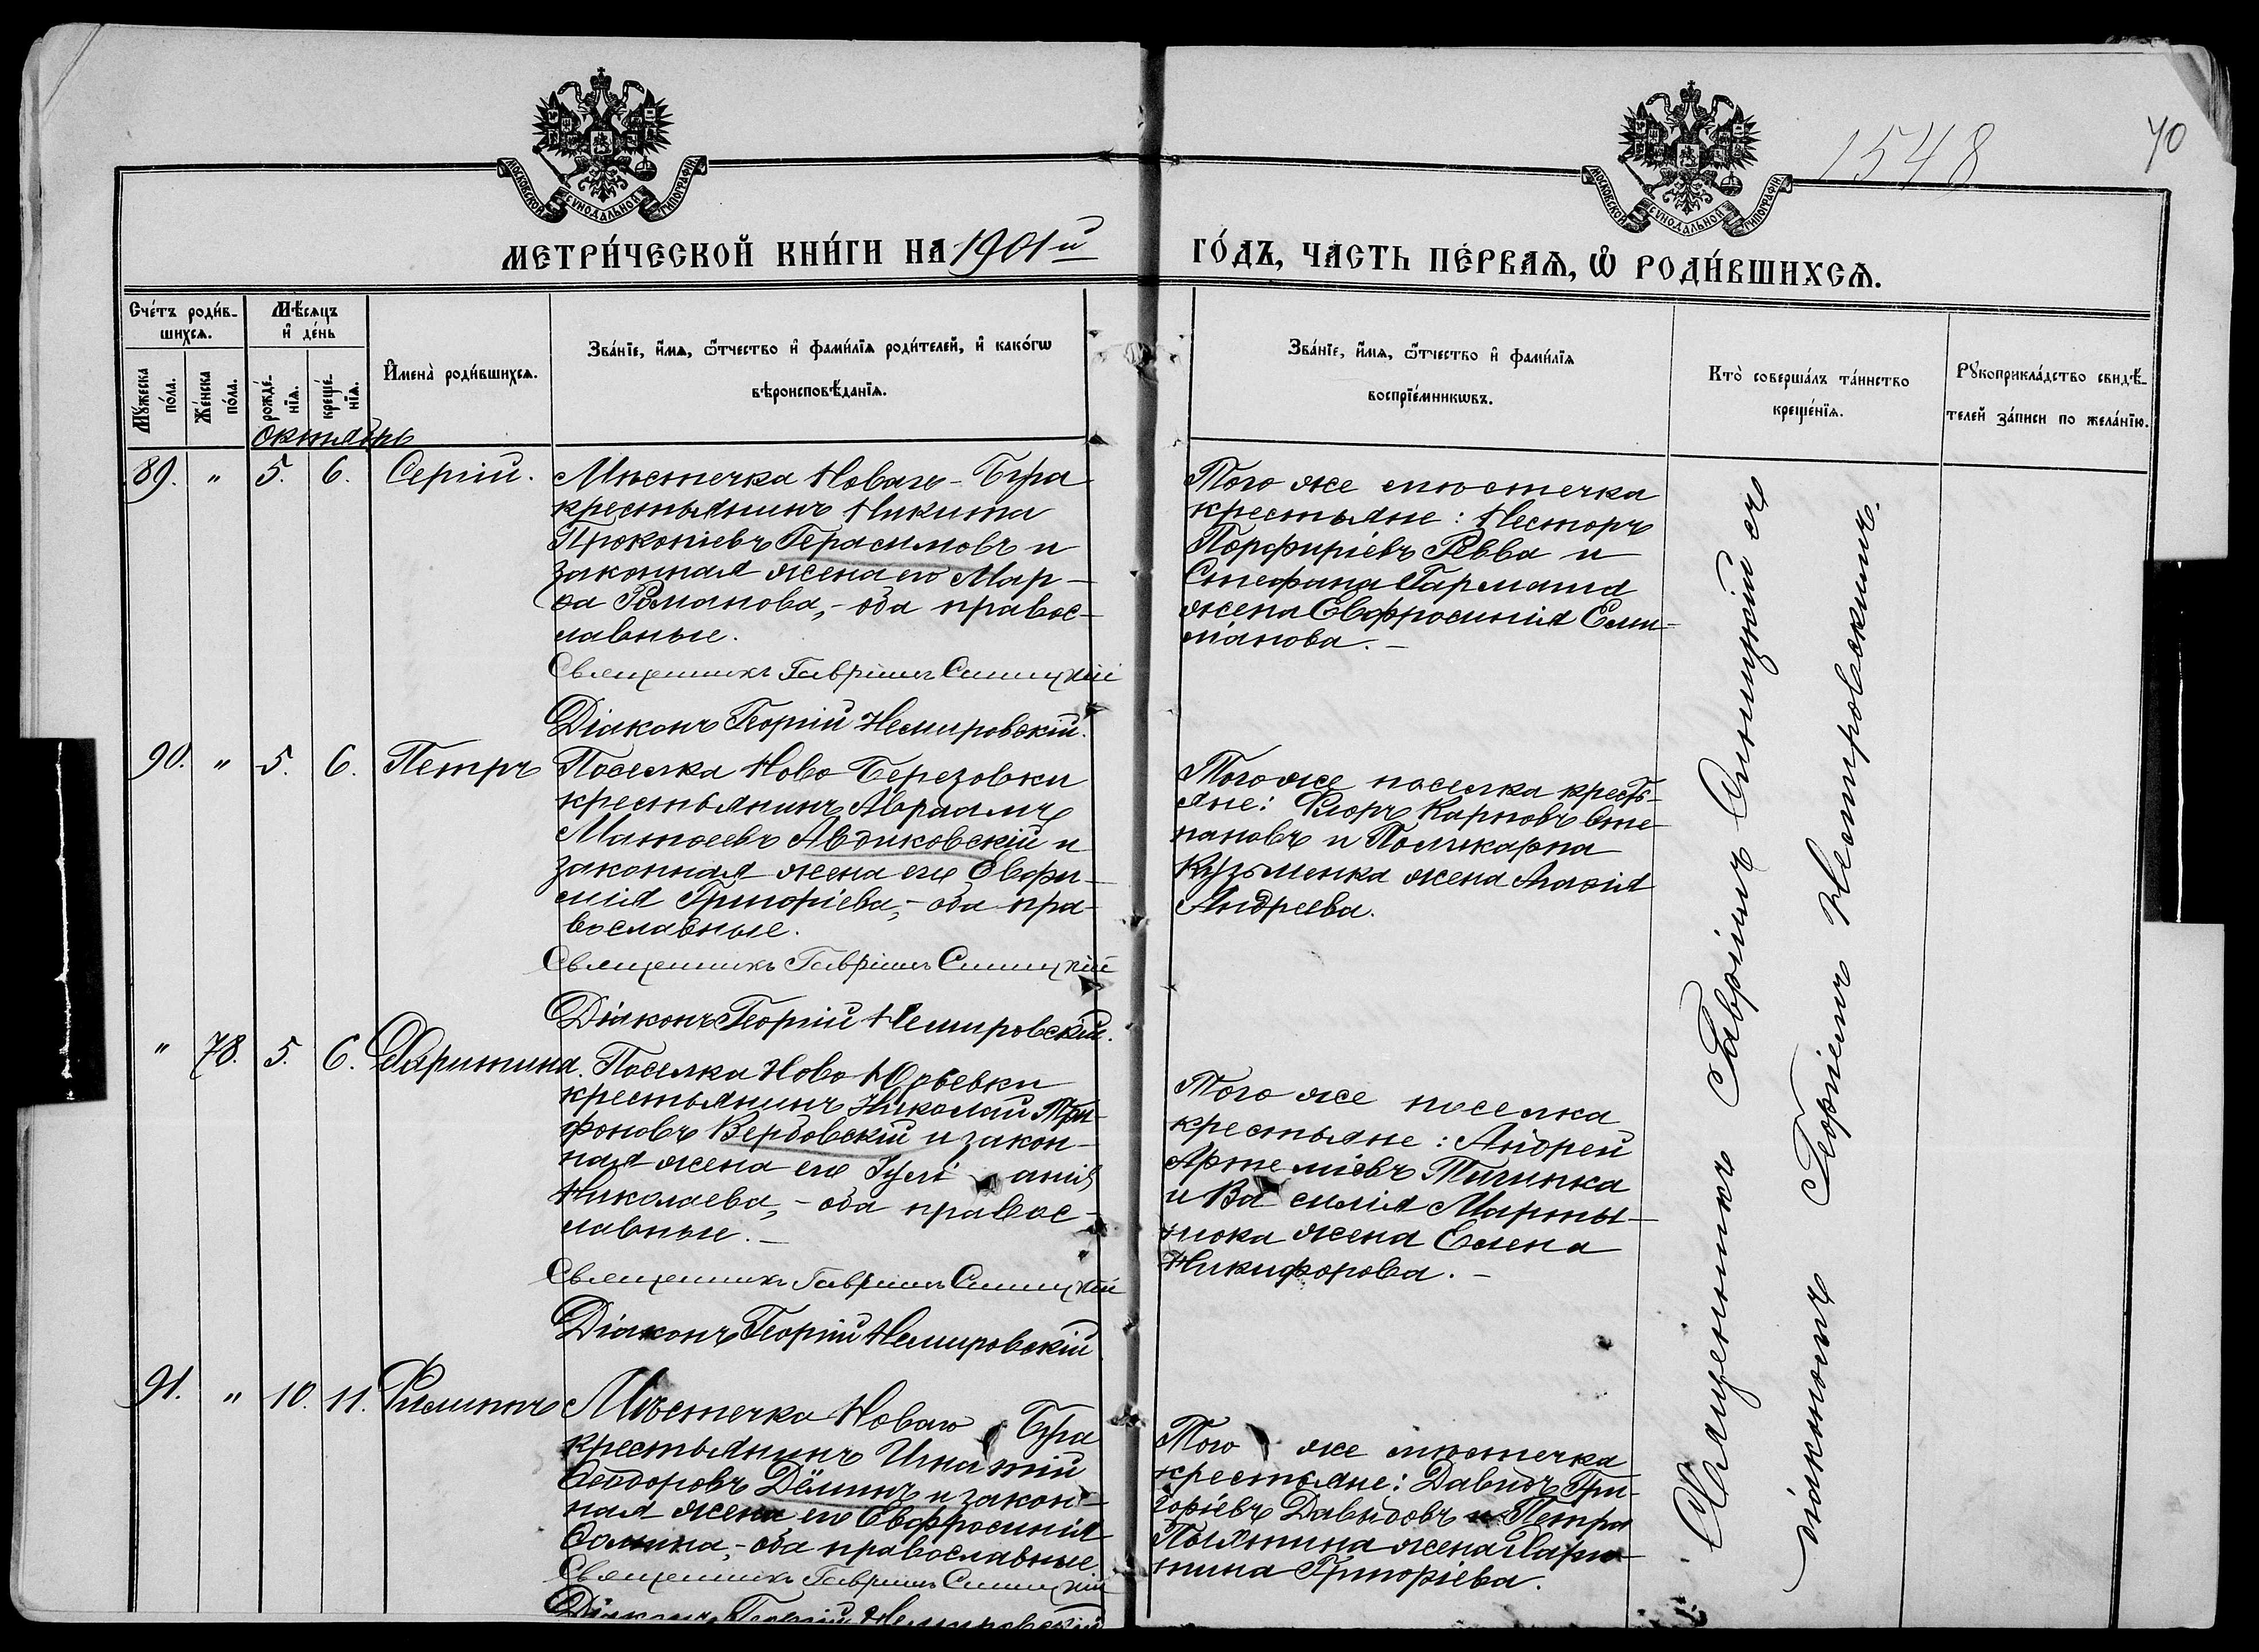 1548
70
МОСКОВСКОЙ СУНОДАЛЬНОЙ ТИПОГРАФІИ
МОСКОВСКОЙ СУНОДАЛЬНОЙ ТИПОГРАФІИ
МЕТРИ́ЧЕСКОЙ КНИ́ГИ НА 1901й ГО́ДЪ, ЧА́СТЬ ПЕ́РВАѦ, Ѿ РОДИ́ВШИХСѦ.
Сче́тъ роди́в-
шихсѧ.
Мѣ́сѧцъ
и҆ де́нь
Мꙋ́жеска
по́ла.
Же́нска
по́ла.
рожде́-
нїѧ.
креще́-
нїѧ.
И҆мена̀ роди́вшихсѧ.
Зва́нїе, и҆́мѧ, ѻ҆́тчество и҆ фами́лїѧ роди́телей, и҆ како́гѡ
вѣроисповѣ́данїѧ.
Зва́нїе, и҆́мѧ, ѻ҆́тчество и҆ фами́лїѧ
воспрїе́мникѡвъ.
Кто̀ соверша́лъ та́инство
креще́нїѧ.
Рꙋкоприкла́дство свидѣ́-
телей за́писи по жела́нїю.
октябрь
89. " 5. 6. Сергій.
Мѣстечка Новаго-Буга
крестьянинъ Никита
Прокопіевъ Герасимовъ и
законная жена его Мар-
ѳа Романова,- оба правос-
лавные.
Священникъ Гавріилъ Синицкій
Діаконъ Георгій Немировскій.
Того же мѣстечка
крестьяне: Несторъ
Порфиріевъ Ревва и
Стефана Гармаша
жена Евфросинія Еми-
ліанова.-
90. " 5. 6. Петръ
Поселка Ново Березовки
крестьянинъ Авраамъ
Матѳеевъ Авдиковскій и
законная жена его Евфи-
мія Григоріева,- оба пра-
вославные.
Священникъ Гавріилъ Синицкій
Діаконъ Георгій Немировскій.
Того же поселка кресть-
яне: Флоръ Карповъ Сте
пановъ и Поликарпа
Кузьменка жена Агаѳія
Андреева.
" 78. 5. 6. Харитина.
Поселка Ново Юрьевки
крестьянинъ Николай Три-
фоновъ Вербовскій и закон-
ная жена его Іулі анія
Николаева,- оба правос-
лавные.-
Священникъ Гавріилъ Синицкій
Діаконъ Георгій Немировскій
Того же поселка
крестьяне: Андрей
Артеміевъ Тигинка
и Ва силія Марты-
нюка жена Елена
Никифорова.-
91. " 10. 11. Филиппъ
Мѣстечка Новаго Буга
крестьянинъ Игнатій
Ѳеодоровъ Дёминъ и закон-
ная жена его Евфросинія
Ѳомина,- оба православные.
Священникъ Гавріилъ Синицкій
Діаконъ Георгій Немировскій
Того же мѣстечка
крестьяне: Давидъ Гри-
горіевъ Давыдовъ и Петра
жена Хари-
тина Григоріева.
Священникъ Гавріилъ Синицкій съ
діакономъ Георгіемъ Немировскимъ.